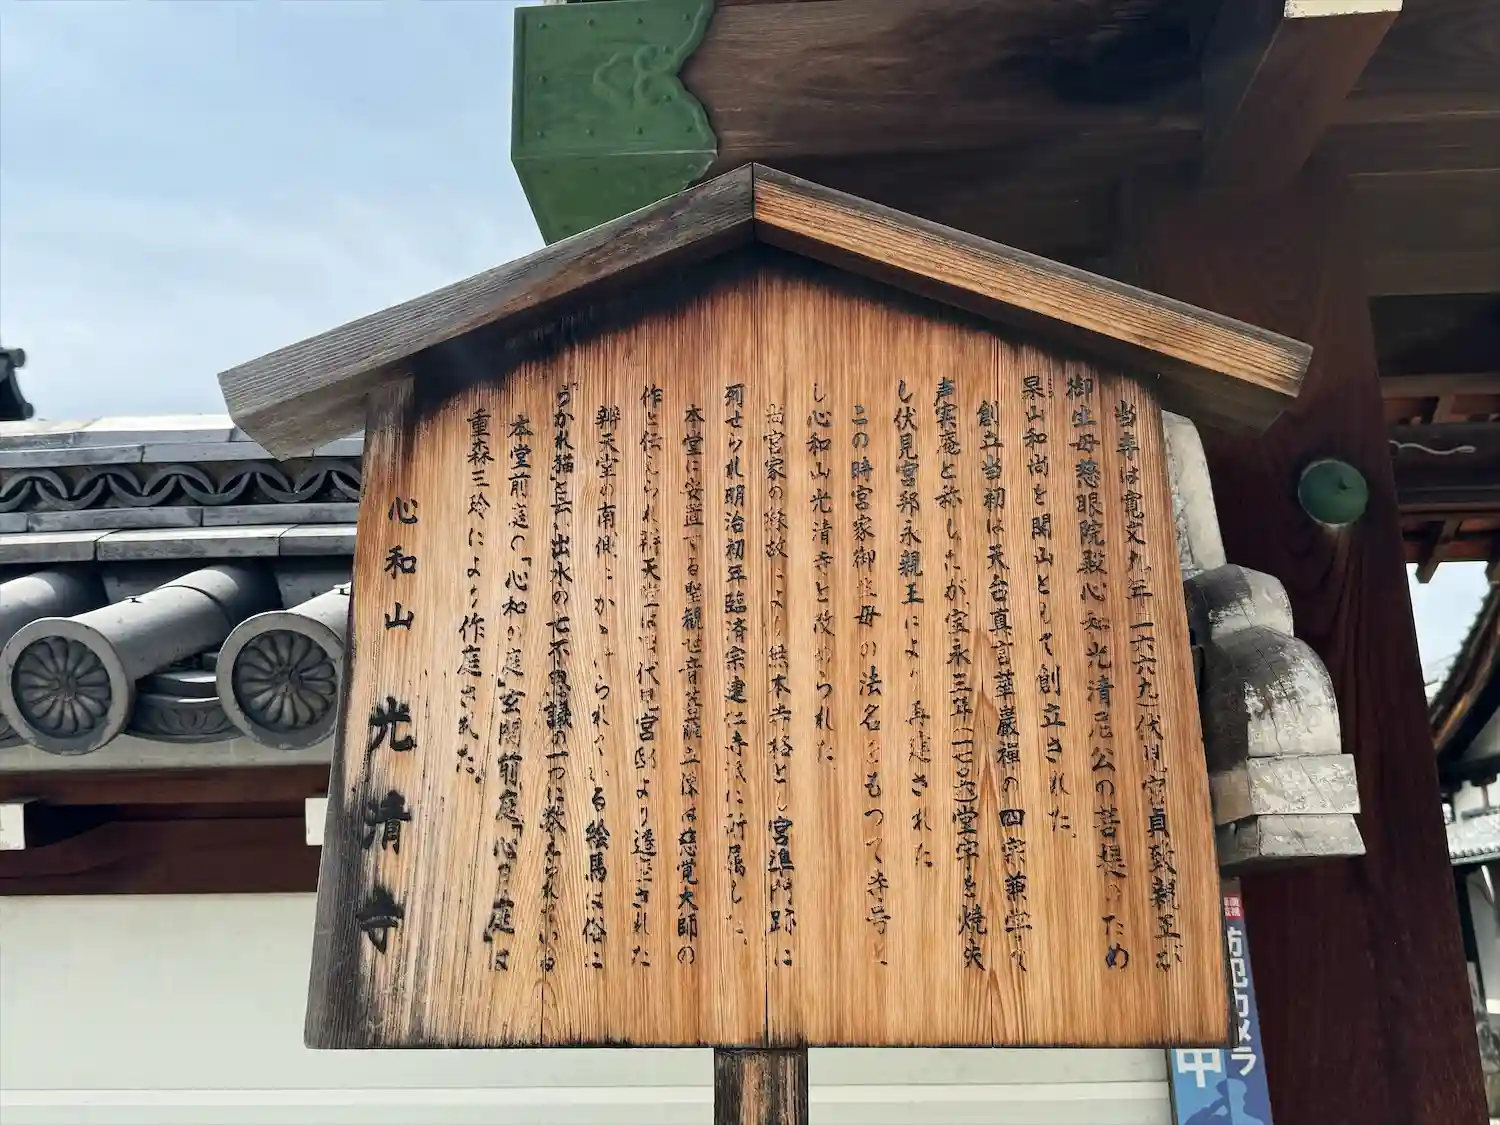 当寺は寛文九年(一六六九)伏見宮貞致親王が
御生母慈眼院殿心和光清尼公の菩提のため
杲山和尚を開山として創立された。
創立当初は天台真言華厳禅の四宗兼学で
声実庵と称したが宝永三年(一七〇六)堂宇を焼失
し伏見宮邦永親王により再建された
この時宮家御生母の法名をもつて寺号と
し心和山光清寺と改められた
尚宮家の縁故により無本寺格とし宮準門跡に
列せられ明治初年臨済宗建仁寺派に所属した。
本堂に安置する聖観世音菩薩立像は慈覚大師の
作と伝えられ弁天堂は 代 宮邸より遷座された
辨天堂の南側にかかげられている絵馬は俗に
うかれ猫」と云い出水の七不思議の一つに数えられている
本堂前庭の「心和の庭」玄関前庭「心月庭」は
重森三玲により作庭された。
心和山 光清寺
防犯カメラ
中